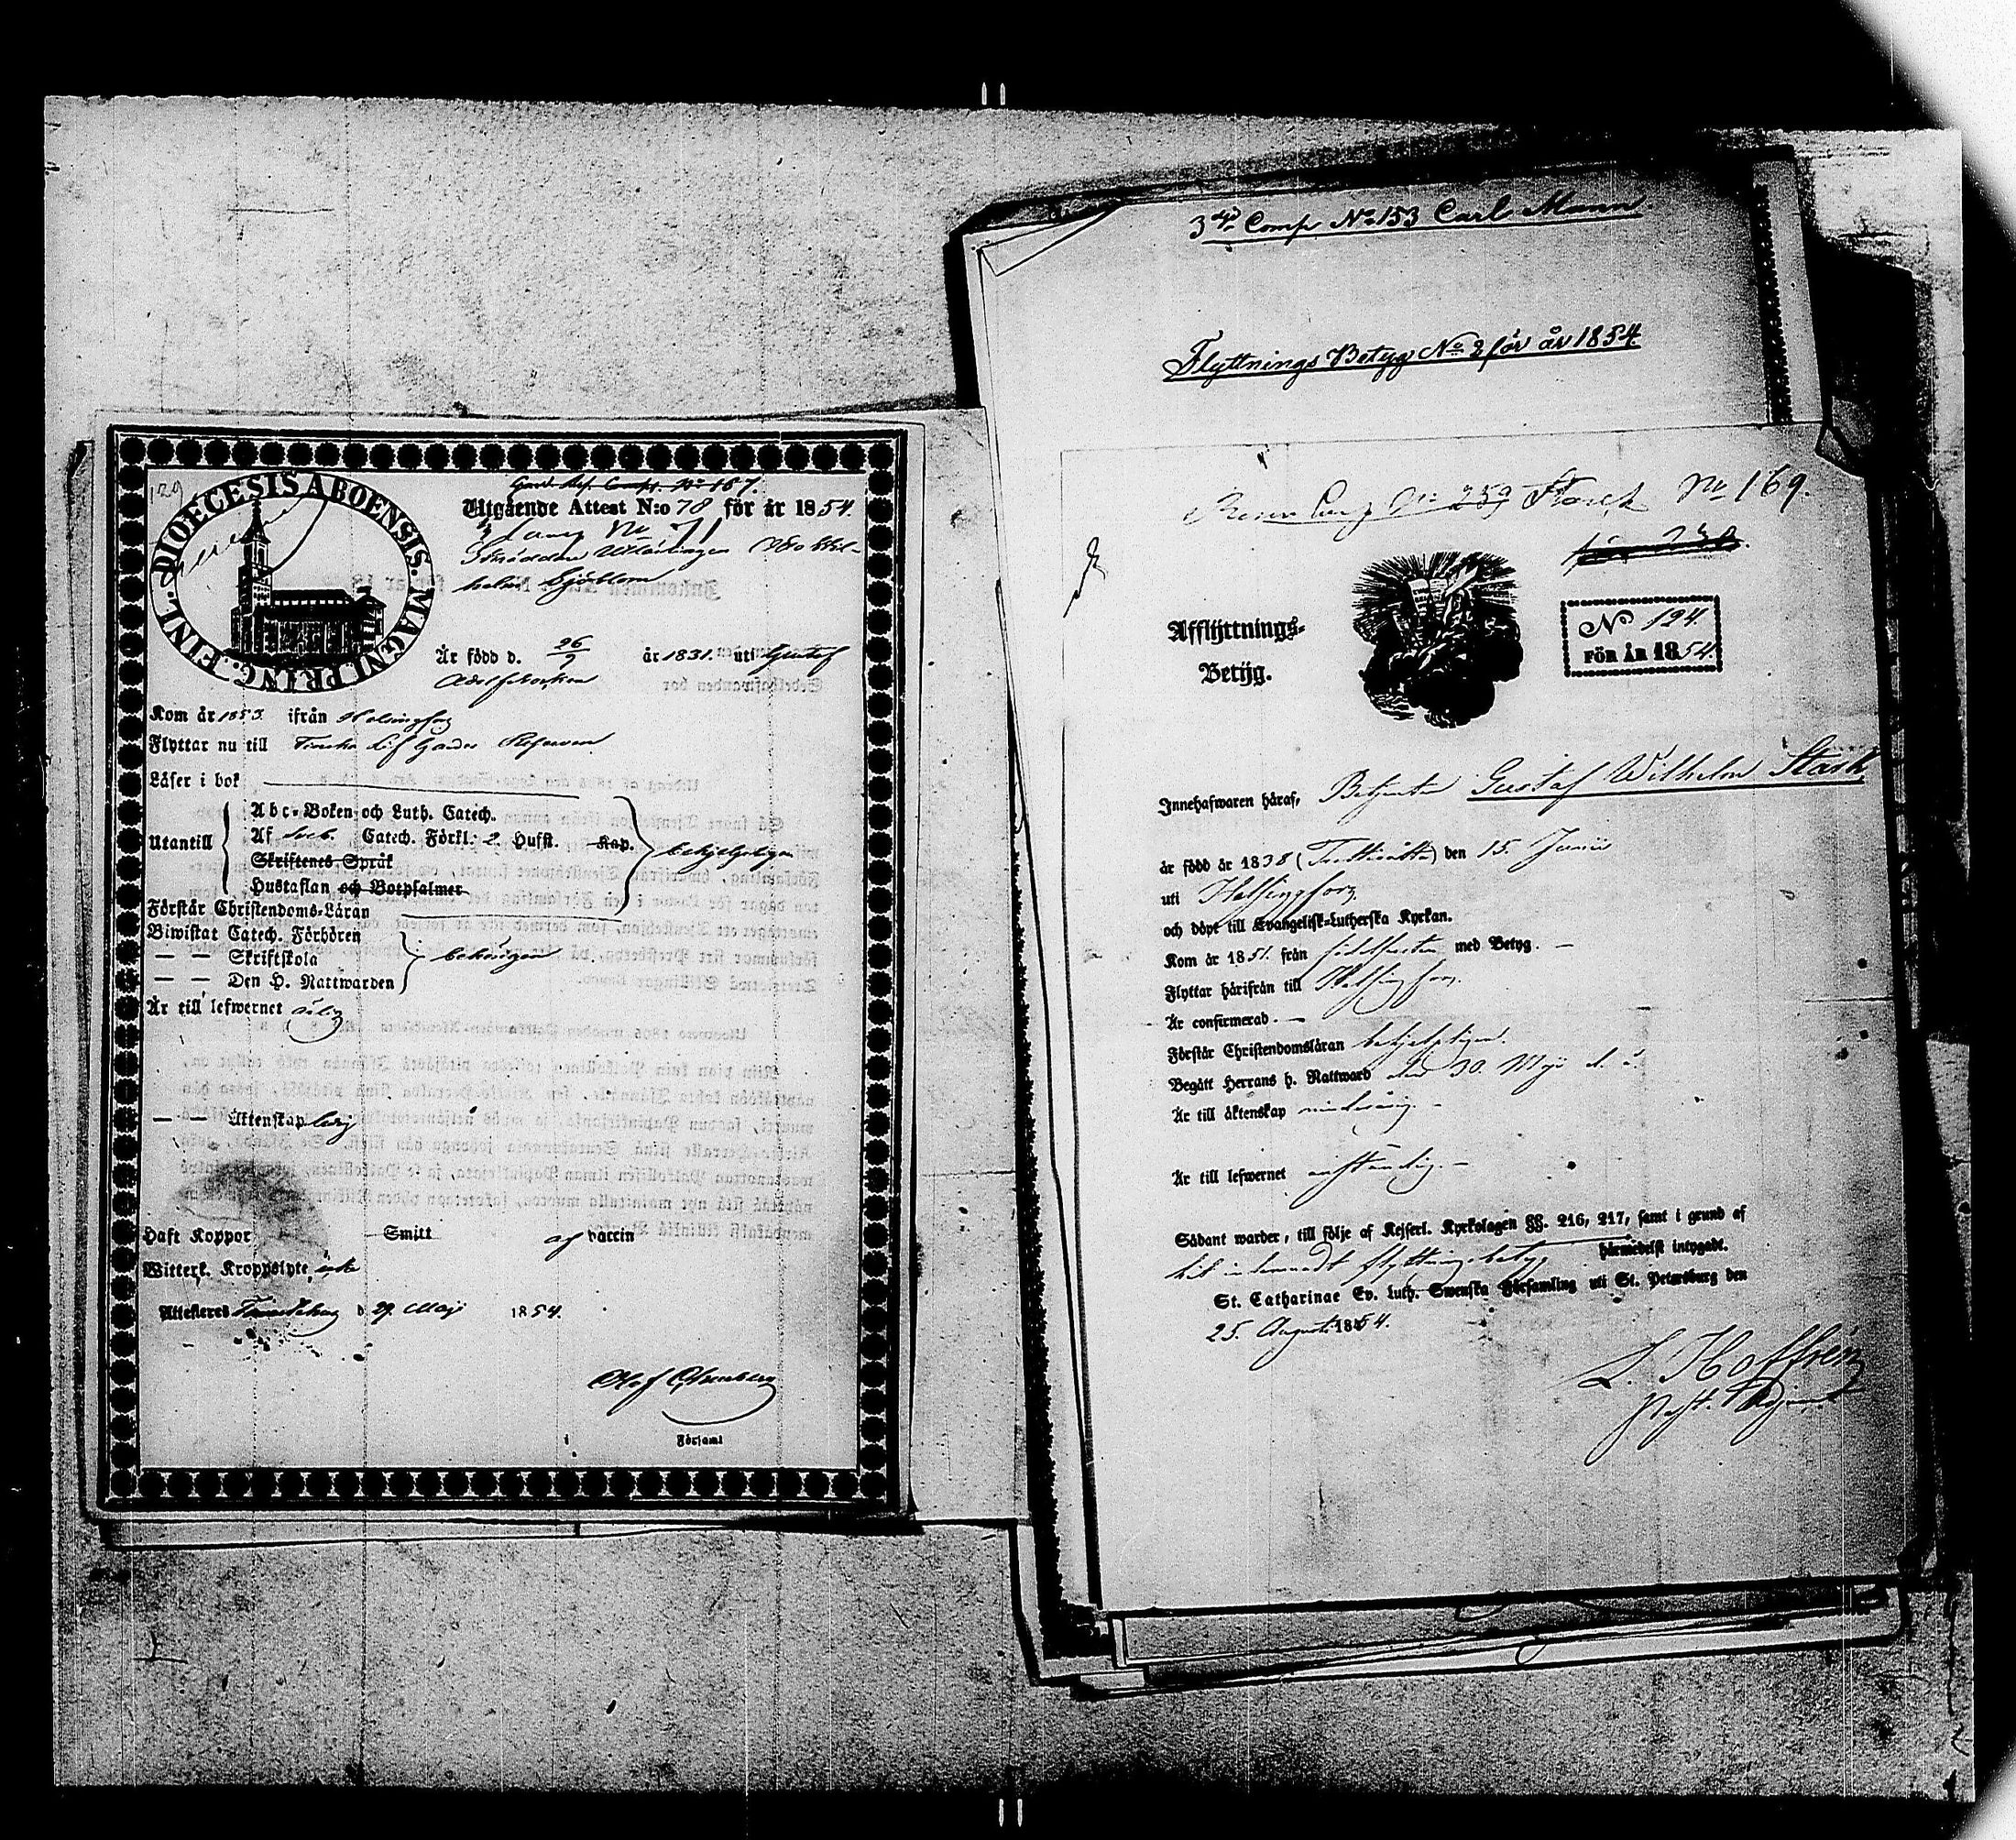 129
DIOECESIS ABOENSIS. MAGNI PRINC. FINL.
Gard. Res. Comp. No 167.
Utgående Attest N:o 78 för år 1854.
Comp No 71
Skräddare Utlärlingen Otto Wil-
helm Sjöblom
Är född d. 26/9 år 1831. uti Gustaf
Adolfs socken
Kom år 1853. ifrån Helsingfors
Flyttar nu till Finska Lif Gardes Reserven
Läser i bok
Utantill
Abc-Boken och Luth. Catech.
Af Sveb. Catech. Förkl. 2. Hufst. Kap.
Skriftenes Språk
Hustaflan och Botpsalmer
behjelpligen
Förstår Christendoms-Läran
Biwistat Catech. Förhören
— — Skriftskola
— — Den H. Nattwarden
behörigen
Är till lefwernet
— — Äktenskap ledig
Haft Koppor Smitt af vaccin
Witterl. Kroppslyte icke
Attesteres d. 29. Maji 1854.
Olof
i Församl
3dje Comp No 153 Carl Mann
Flyttnings Betyg No 2 för år 1854
Comp No 259 Starck No 169.
Afflyttnings-
Betyg.
No 194.
FÖR ÅR 1854.
Innehafwaren häraf, Betjenten Gustaf Wilhelm Stark
är född år 1838 (Trettioåtta) den 15. Junii
uti Helsingfors
och döpt till Evangelisk-Lutherska Kyrkan.
Kom år 1851. från födelseorten med Betyg. —
Flyttar härifrån till Helsingfors.
Är confirmerad. —
Förstår Christendomsläran behjelpligen.
Begått Herrans h. Nattward den 30. Maji d. å.
Är till äktenskap minderårig. —
Är till lefwernet anständig. —
Sådant warder, till följe af Kejserl. Kyrkolagen §§. 216, 217, samt i grund af
hit inlemnadt flyttningsbetyg härmedelst intygadt.
St. Catharinae Ev. Luth. Swenska Församling uti St. Petersburg den
25. Augusti 1854.
L. Hoffrén
Past. Adjunct